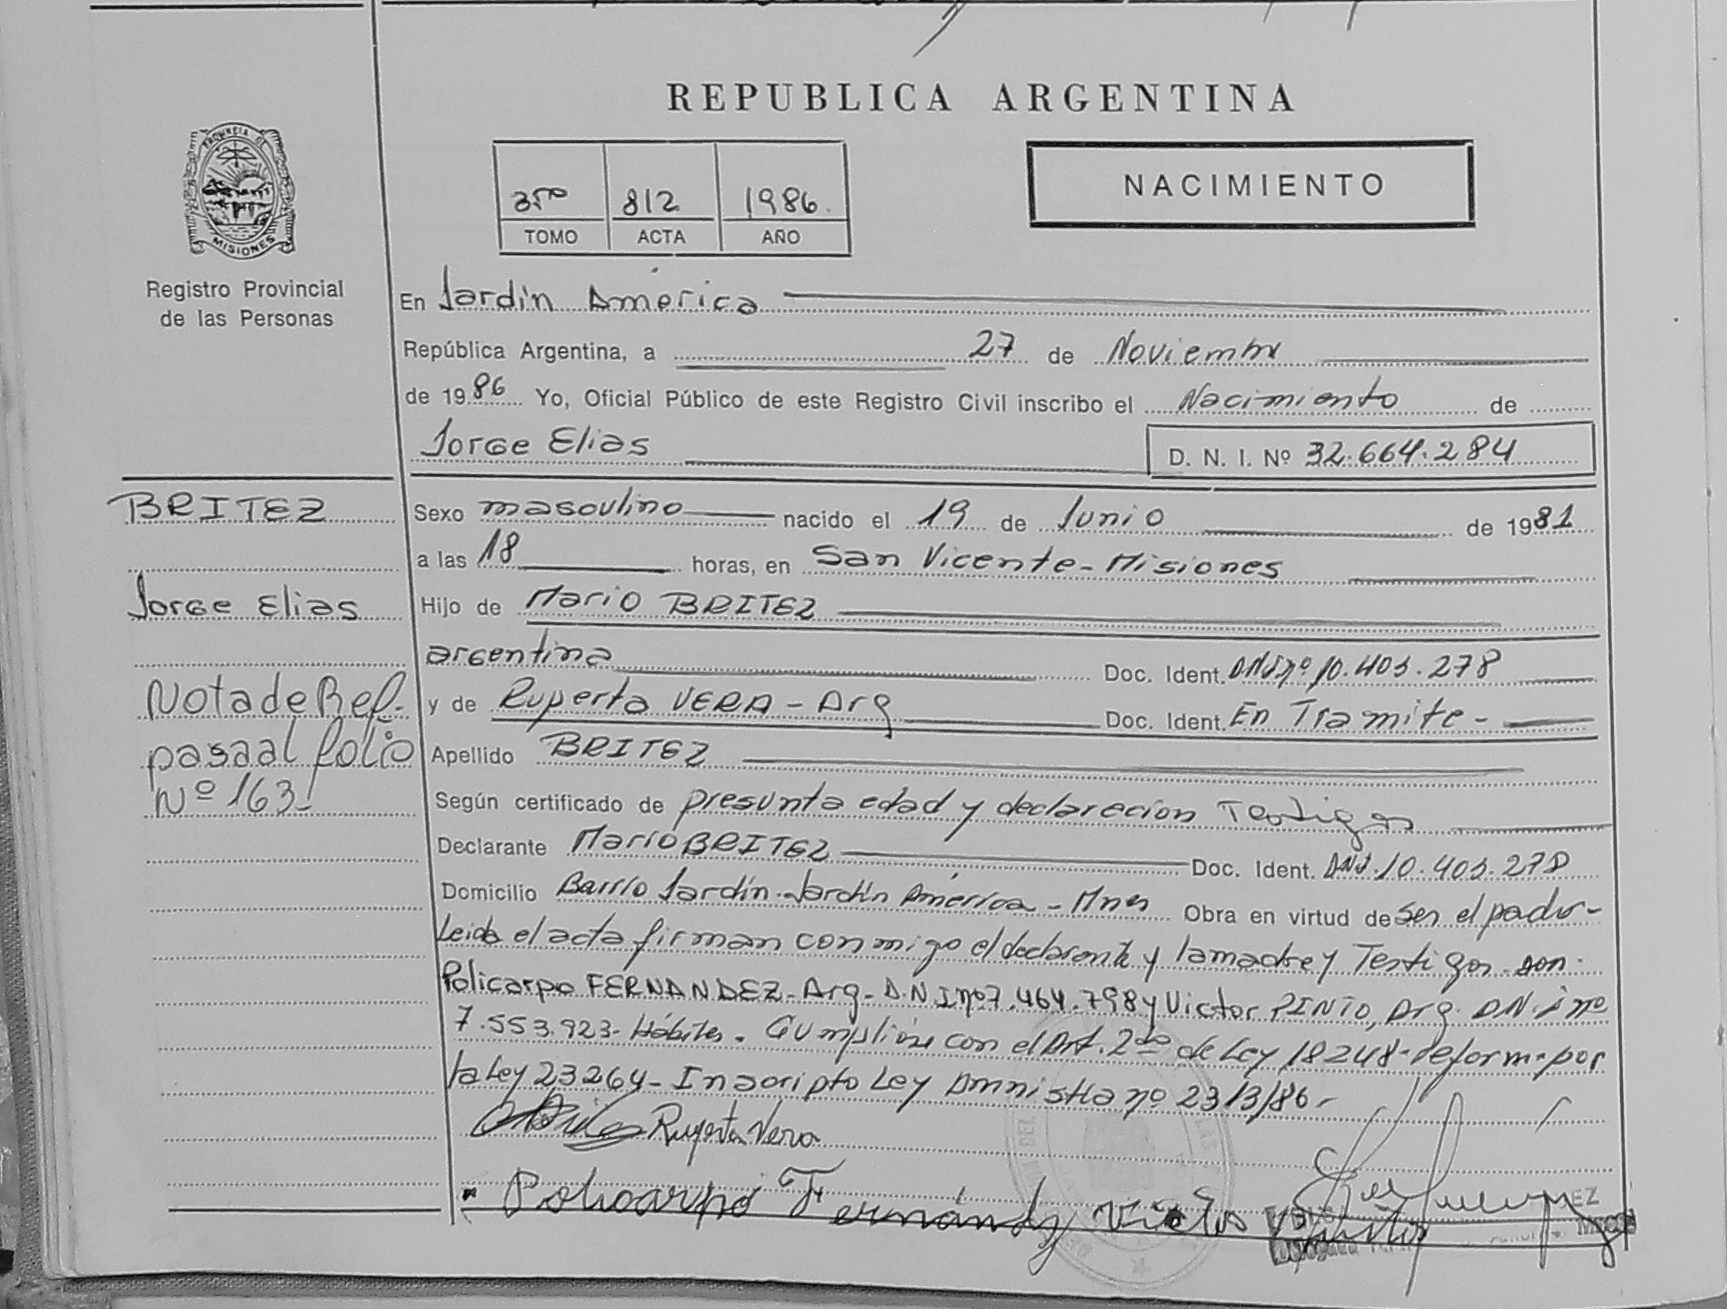 REPUBLICA ARGENTINA
PROVINCIA DE
MISIONES
Registro Provincial
de las Personas
3ro 812 1986.
TOMO ACTA AÑO
NACIMIENTO
En Jardín América
República Argentina, a 27 de Noviembre
de 1986 Yo, Oficial Público de este Registro Civil inscribo el Nacimiento de
Jorge Elias D. N. I. Nº 32.664.284
BRITEZ
Jorge Elias
Nota de Ref.
pasa al folio
Nº 163
Sexo masculino nacido el 19 de Junio de 1981
a las 18 horas, en San Vicente - Misiones
Hijo de Mario BRITEZ
argentina Doc. Ident. DNI nº 10.403.278
y de Ruperta VERA - Arg Doc. Ident. En Tramite -
Apellido BRITEZ
Según certificado de presunta edad y declaracion Testigos
Declarante Mario BRITEZ Doc. Ident. DNI. 10.403.278
Domicilio Barrio Jardín - Jardín América - Mnes Obra en virtud de ser el padre -
Leida el acta firman conmigo el declarante y la madre y Testigos son
Policarpo FERNANDEZ - Arg - D.N.I nº 7.464.798 y Victor PINTO, Arg. D.N.I nº
7.553.923 - Hábiles. Cumplióse con el Art. 2do de Ley 18248 - reform - por
la Ley 23264 - Inscripto Ley Amnistia nº 23/3/86 -
Ruperta Vera
Policarpo Fernández Victor Pinto